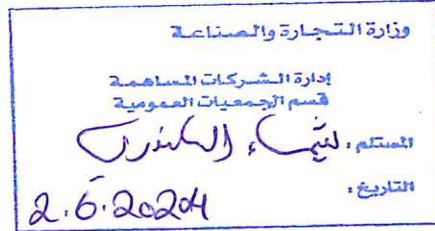 وزارة التجارة والصناعة
إدارة الشركات المساهمة
قسم الجمعيات العمومية
المستلم : شيماء الكندري
التاريخ :
2.6.2024